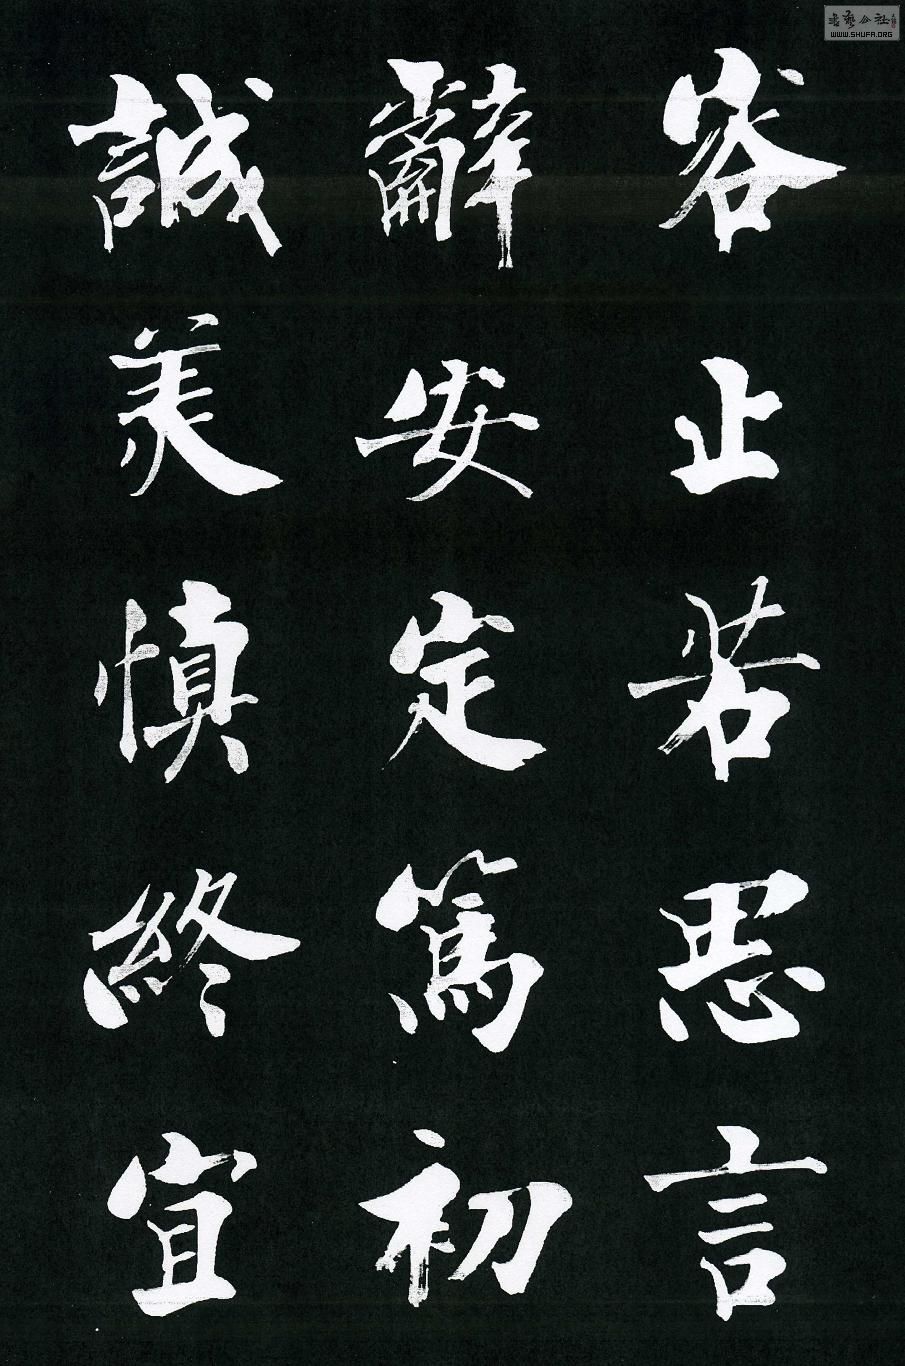 容止若思言
辭安定篤初
誠美慎終宜
WWW.SHUFA.ORG